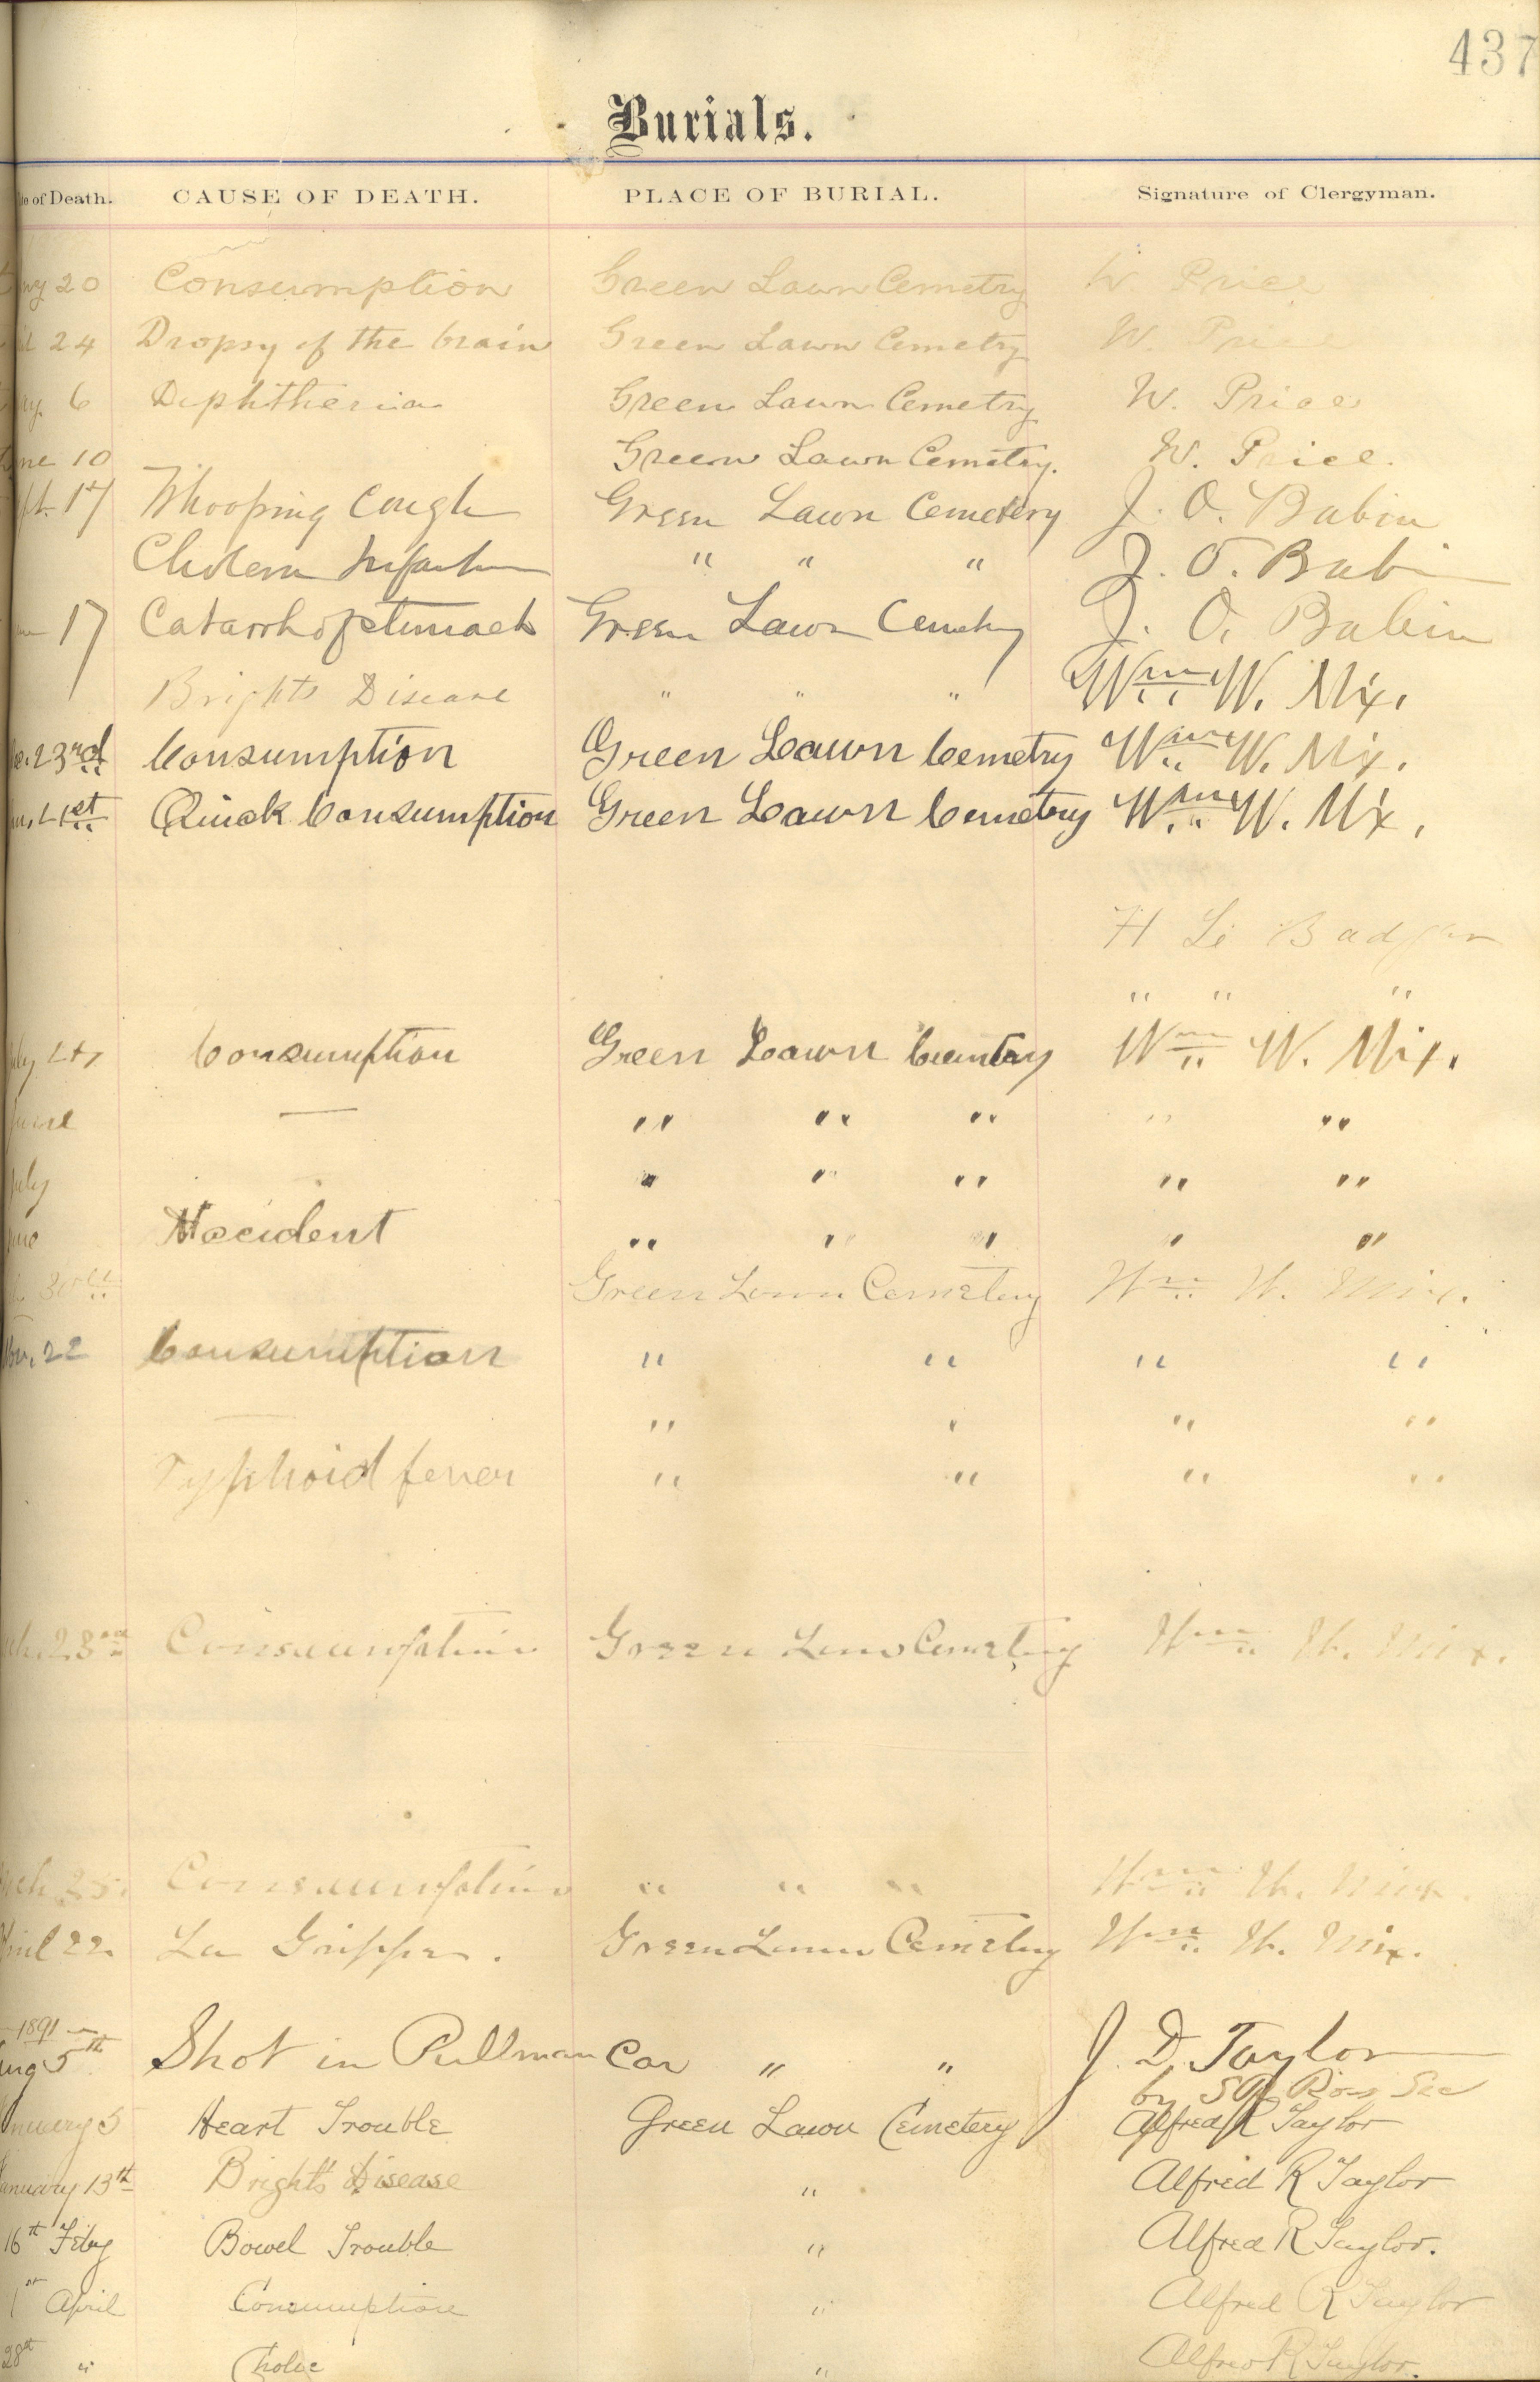 437
Burials.
of Death. CAUSE OF DEATH. PLACE OF BURIAL. Signature of Clergyman.
20 Consumption Green Lawn Cemetry W. Price
24 Dropsy of the brain Green Lawn Cemetry W. Price
6 Diphtheria Green Lawn Cemetry W. Price
10 Green Lawn Cemetry. W. Price.
17 Whooping Cough Green Lawn Cemetery J. O. Babin
Cholera Infantum " " " J. O. Babin
17 Catarrh of stomach Green Lawn Cemetery J. O. Babin
Brights Disease " " " Wm W. Mix.
23rd Consumption Green Lawn Cemetry Wm W. Mix.
1st Quick Consumption Green Lawn Cemetry Wm W. Mix.
H Badger
" " "
Consumption Green Lawn Cemetry Wm W. Mix.
June — " " " " "
July " " " " "
Accident " " " " "
30th Green Lawn Cemetery Wm W. Mix.
22 Consumption " " " "
" " " "
Typhoid fever " " " "
23rd Consumption Green Lawn Cemetery Wm W. Mix.
25. Consumption " " " Wm W. Mix.
April 22. La Grippe. Green Lawn Cemetery Wm W. Mix.
1891
Aug 5th Shot in Pullman Car " " J. D. Taylor
by Ross Sec
January 5 Heart Trouble Green Lawn Cemetery Alfred R Taylor
January 13th Bright's Disease " Alfred R Taylor
16th Feby Bowel Trouble " Alfred R Taylor.
1st April Consumption " Alfred R Taylor
28th " Cholic " Alfred R Taylor.